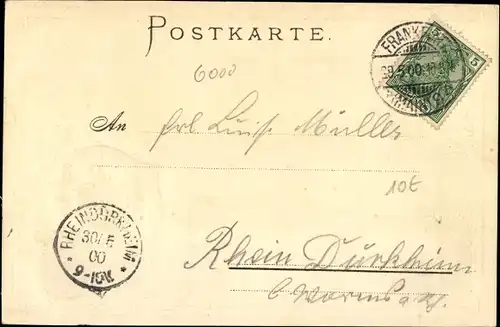 POSTKARTE.
FRANKFURT
5
6000
29.5.00.
(MAIN)
An Frl. Luise Müller
10€
RHEINDÜRKHEIM
30/5
00
9-10V.
Rhein Dürkheim
b/Worms a. Rh.